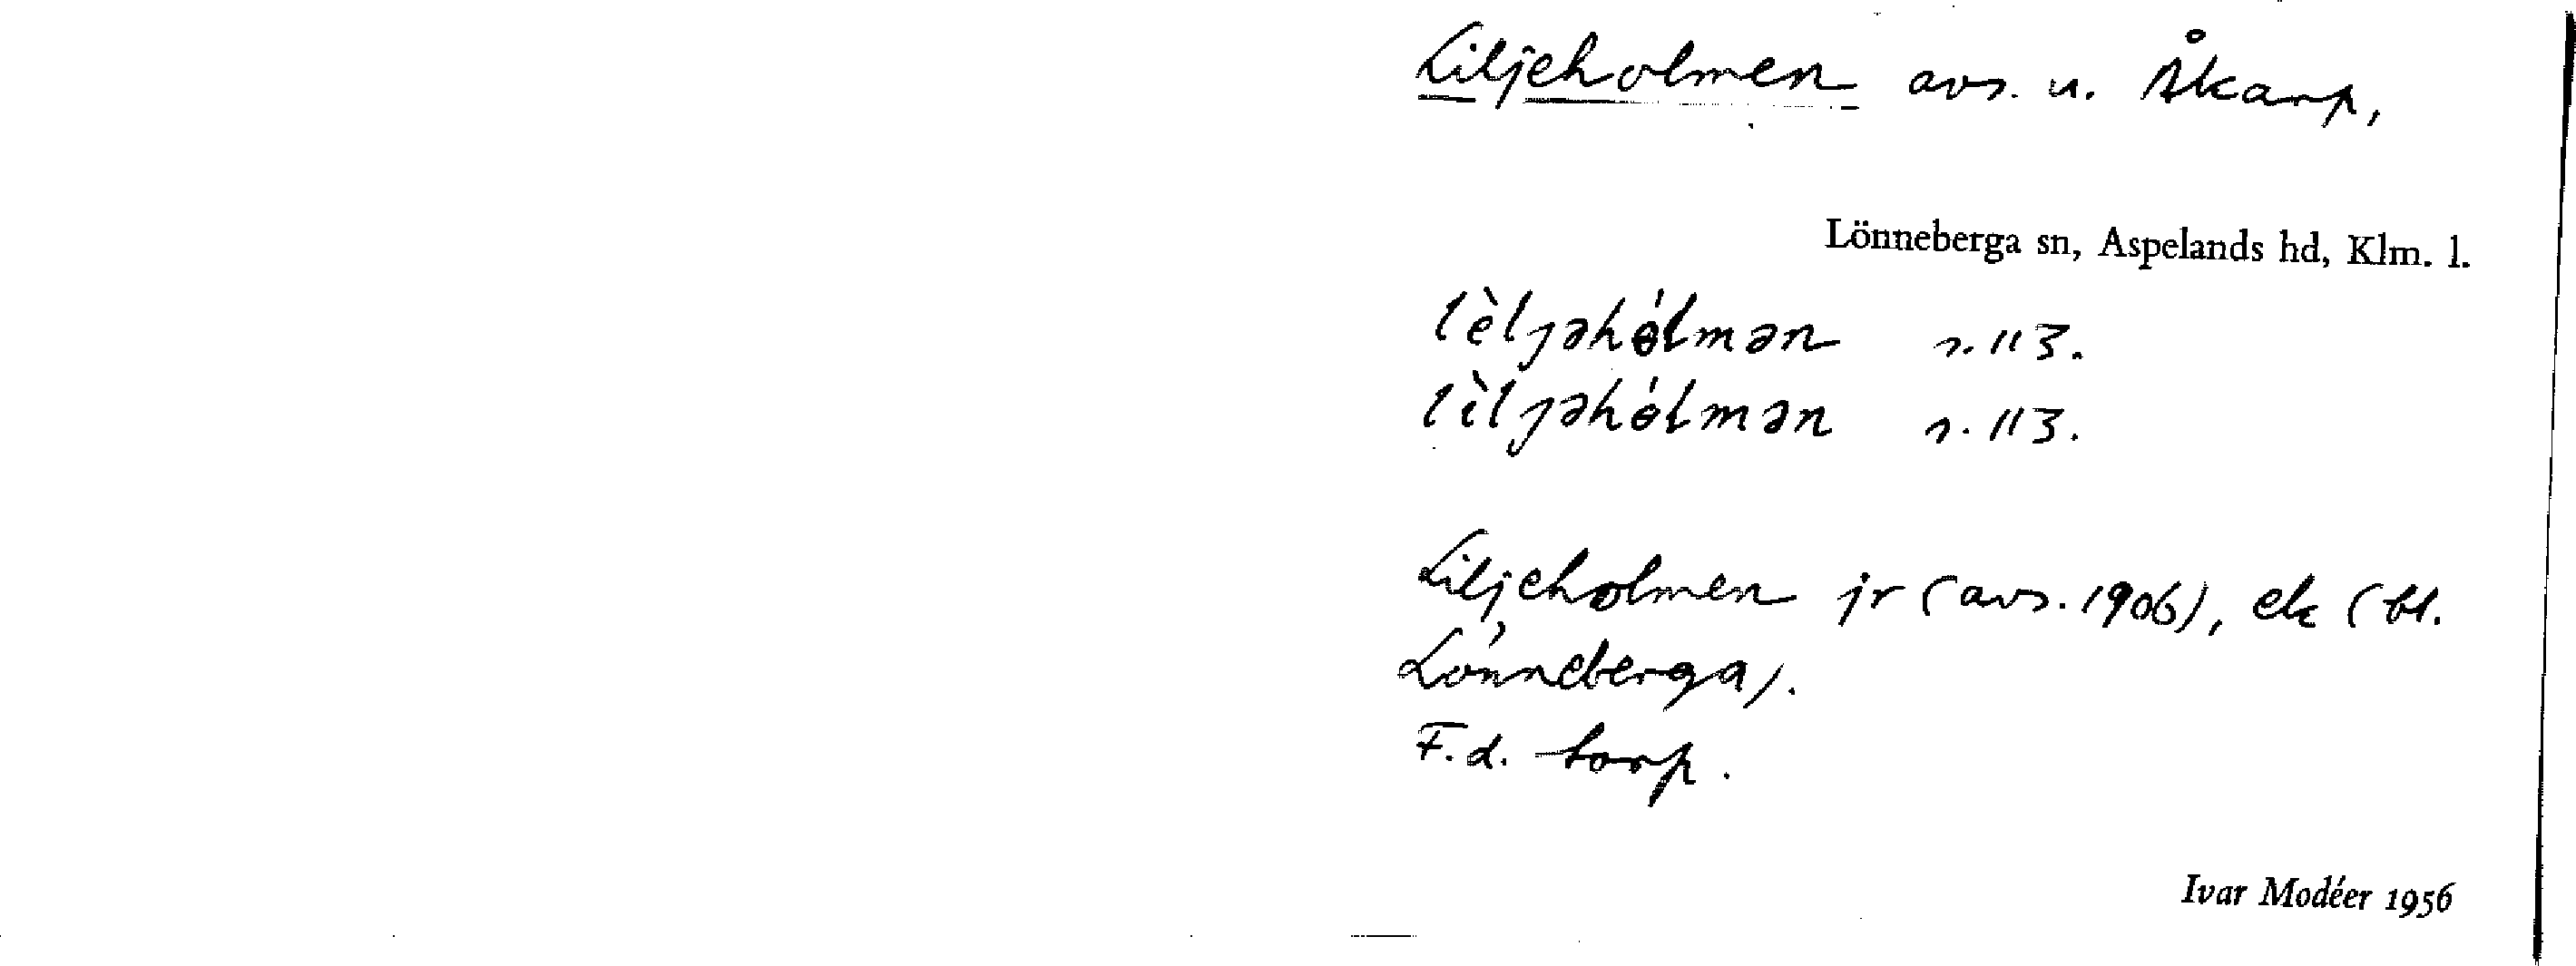 Liljeholmen avs. u. Åkarp,
Lönneberga sn, Aspelands hd, Klm. l.
lèljəhɵ́lmən s. 113.
lìljəhɵ́lmən s. 113.
Liljeholmen jr (avs. 1906), ek (bl.
Lönneberga).
F.d. torp.
Ivar Modéer 1956